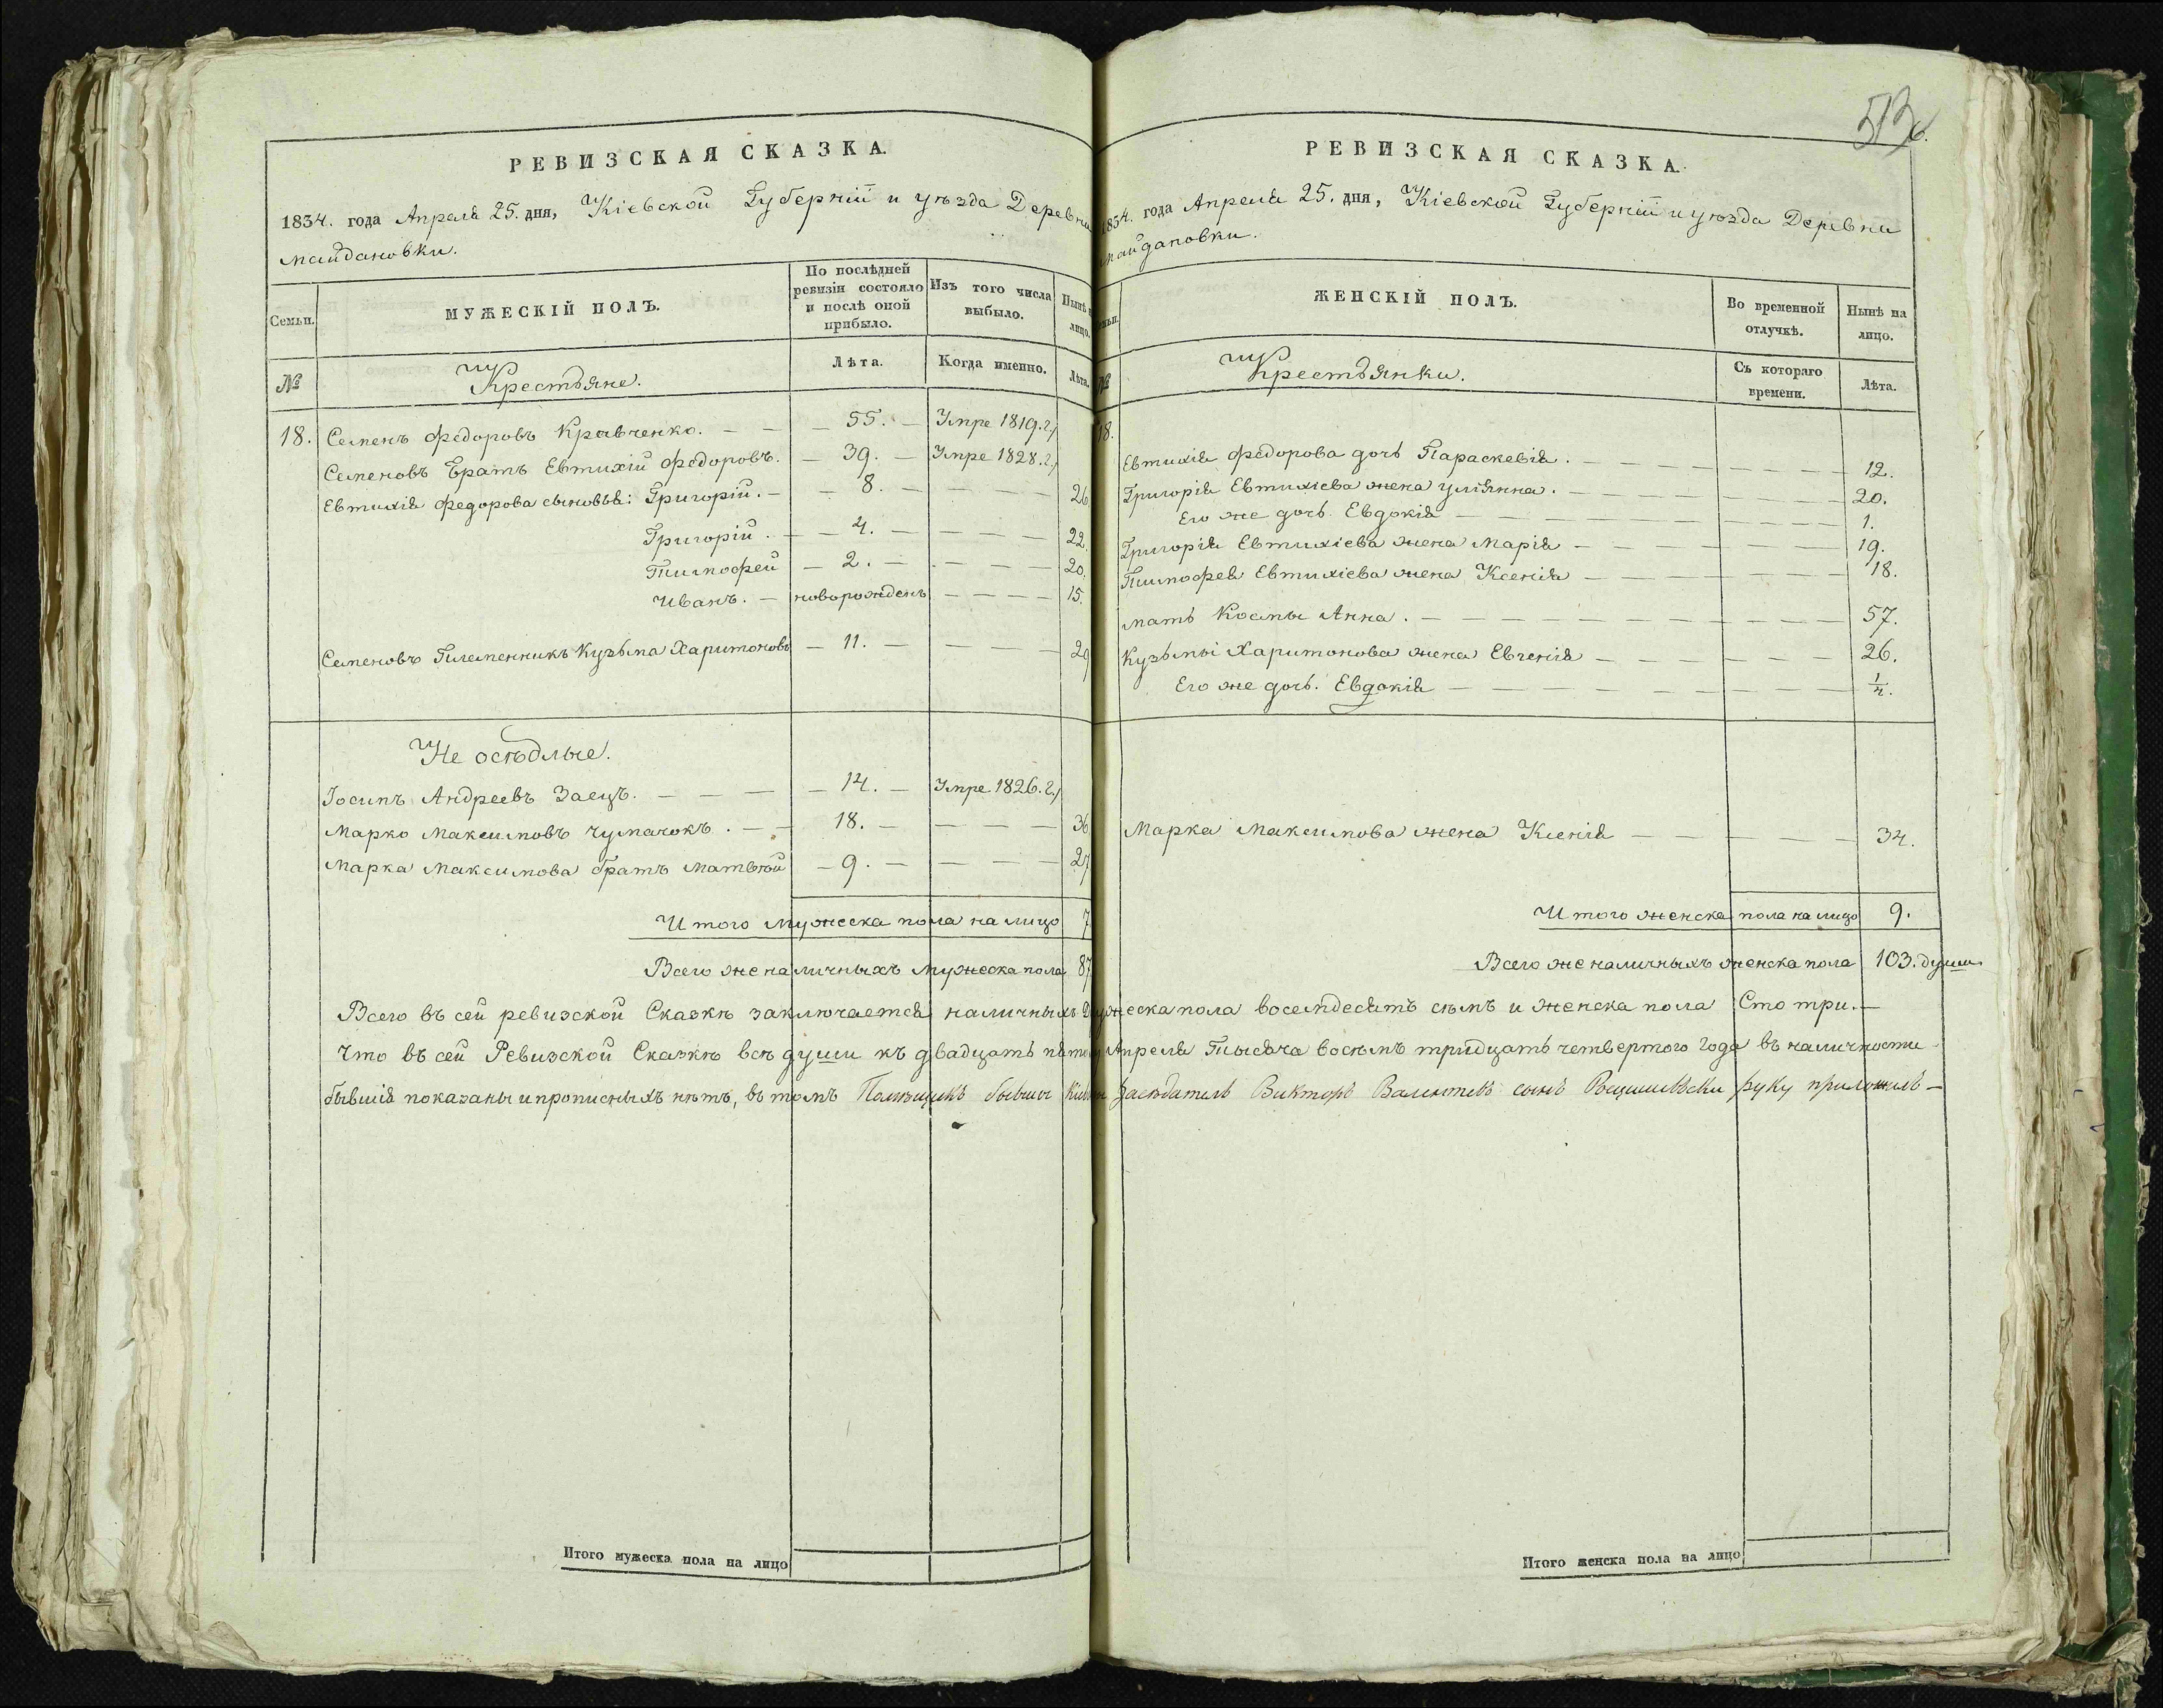 РЕВИЗСКАЯ СКАЗКА.
1834. года Апреля 25. дня, Кіевской Губерніи и уѣзда Деревни
Майдановки.
Семьи.
МУЖЕСКІЙ ПОЛЪ.
По послѣдней ревизіи состояло и послѣ оной прибыло.
Изъ того числа выбыло.
Нынѣ на лицо.
№
Крестьяне.
Лѣта.
Когда именно.
Лѣта.
18. Семенъ Федоровъ Кравченко. — — — 55. — Умре 1819. г.
Семеновъ Братъ Евтихій Федоровъ. — 39. — Умре 1828. г.
Евтихія Федорова сыновья: Григорій. — — 8. — — — — 26
Григорій. — — 4. — — — — 22.
Тимофей — 2. — — — — 20.
Иванъ. — новорожденъ — — — — 15.
Семеновъ Племенникъ Кузьма Харитоновъ — 11. — — — — 29
Не осѣдлые.
Іосипъ Андреевъ Заецъ. — — — — 14. — Умре 1826. г.
Марко Максимовъ Чумачокъ. — — 18. — — — — 36
Марка Максимова братъ Матвѣй — 9. — — — — 27
Итого мужеска пола на лицо 7
Всего же наличныхъ мужеска пола 87
РЕВИЗСКАЯ СКАЗКА.
513
1834. года Апреля 25. дня, Кіевской Губерніи и уѣзда Деревни
Майдановки.
Семьи.
ЖЕНСКІЙ ПОЛЪ.
Во временной отлучкѣ.
Нынѣ на лицо.
№
Крестьянки.
Съ котораго времени.
Лѣта.
18.
Евтихія Федорова дочь Параскевія. — — — — 12.
Григорія Евтихіева жена Ульянна. — — — — 20.
Его же дочь Евдокія — — — — 1.
Григорія Евтихіева жена Марія — — — — 19.
Тимофея Евтихіева жена Ксенія — — — — 18.
Мать Косты Анна. — — — — 57.
Кузьмы Харитонова жена Евгенія — — — — 26.
Его же дочь. Евдокія — — — — 1/4.
Марка Максимова жена Ксенія — — — — 34.
Итого женска пола на лицо 9.
Всего же наличныхъ женска пола 103. души
Всего въ сей ревизской Сказкѣ заключается наличныхъ Мужеска пола восемдесятъ сѣмъ и женска пола Сто три. —
Что въ сей Ревизской Сказкѣ всѣ души къ двадцать пятому Апреля Тысяча восѣмъ тридцать четвертого Года въ наличности
бывшія показаны и прописныхъ нѣтъ, въ томъ Помѣщикъ бывшы Засѣдатель Викторъ сынъ руку приложилъ —
Итого мужеска пола на лицо
Итого женска пола на лицо